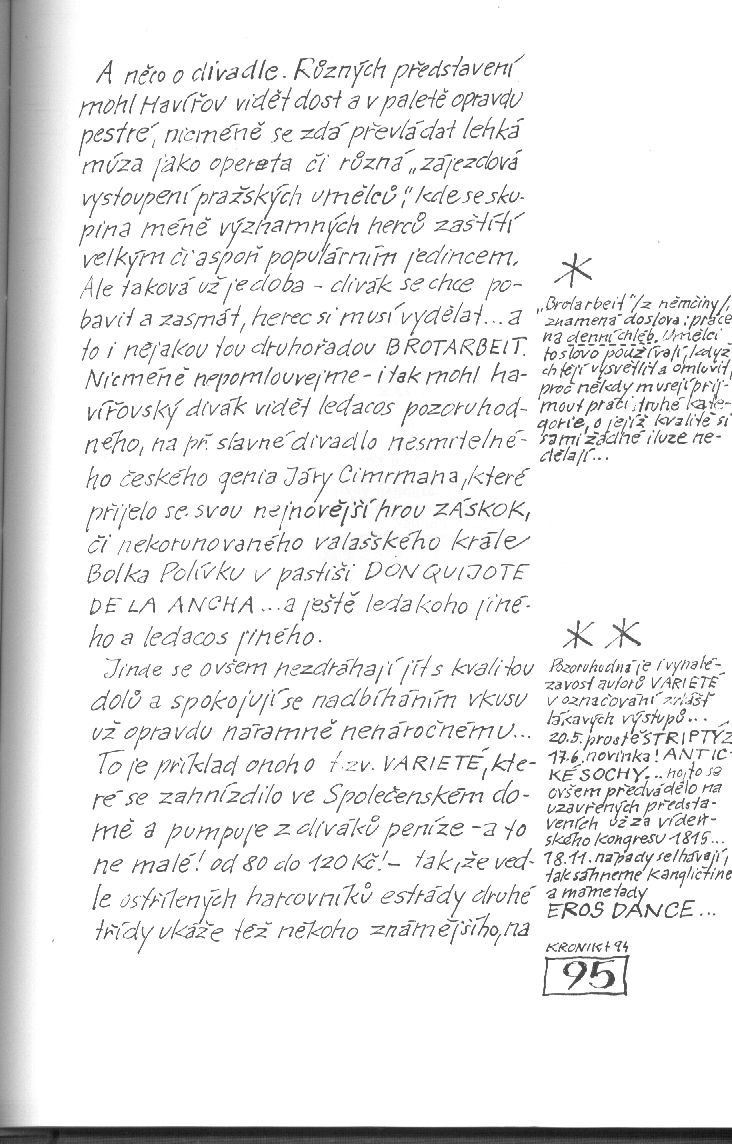 A něco o divadle. Různých představení
mohl Havířov vidět dost a v paletě opravdu
pestré, nicméně se zdá převládat lehká
múza jako opereta či různá „zájezdová
vystoupení pražských umělců“, kde se sku-
pina méně významných herců zaštítí
velkým či aspoň populárním jedincem.
Ale taková už je doba - divák se chce po-
bavit a zasmát, herec si musí vydělat... a
to i nějakou tou druhořadou BROTARBEIT.
Nicméně nepomlouvejme - i tak mohl ha-
vířovský divák vidět ledacos pozoruhod-
ného, na př. slavné divadlo nesmrtelné-
ho českého genia Járy Cimrmana, které
přijelo se svou nejnovější hrou ZÁSKOK,
či nekorunovaného valašského krále
Bolka Polívku v pastiši DON QUIJOTE
DE LA ANCHA... a ještě ledakoho jiné-
ho a ledacos jiného.
Jinde se ovšem nezdráhají jít s kvalitou
dolů a spokojují se nadbíháním vkusu
už opravdu náramně nenáročnému...
To je příklad onoho t.zv. VARIETÉ, kte-
ré se zahnízdilo ve Společenském do-
mě a pumpuje z diváků peníze - a to
ne malé! od 80 do 120 Kč! - tak, že ved-
le ostřílených harcovníků estrády druhé
třídy ukáže též někoho známějšího, na
*
„Brotarbeit“ /z němčiny/,
znamená doslova: práce
na denní chléb. Umělci
to slovo používají, když
chtějí vysvětlit a omluvit,
proč někdy musejí přij-
mout práci druhé kate-
gorie, o jejíž kvalitě si
sami žádné iluze ne-
dělají...
* *
Pozoruhodná je i vynalé-
zavost autorů VARIETÉ
v označování zvlášť
lákavých výstupů...
20.5. prostě STRIPTÝZ
17.6. novinka! ANTIC-
KÉ SOCHY... no, to se
ovšem předvádělo na
uzavřených předsta-
veních už za vídeň-
ského kongresu 1815...
18.11. nápady selhávají,
tak sáhneme k angličtině
a máme tady
EROS DANCE...
KRONIKA 94
95